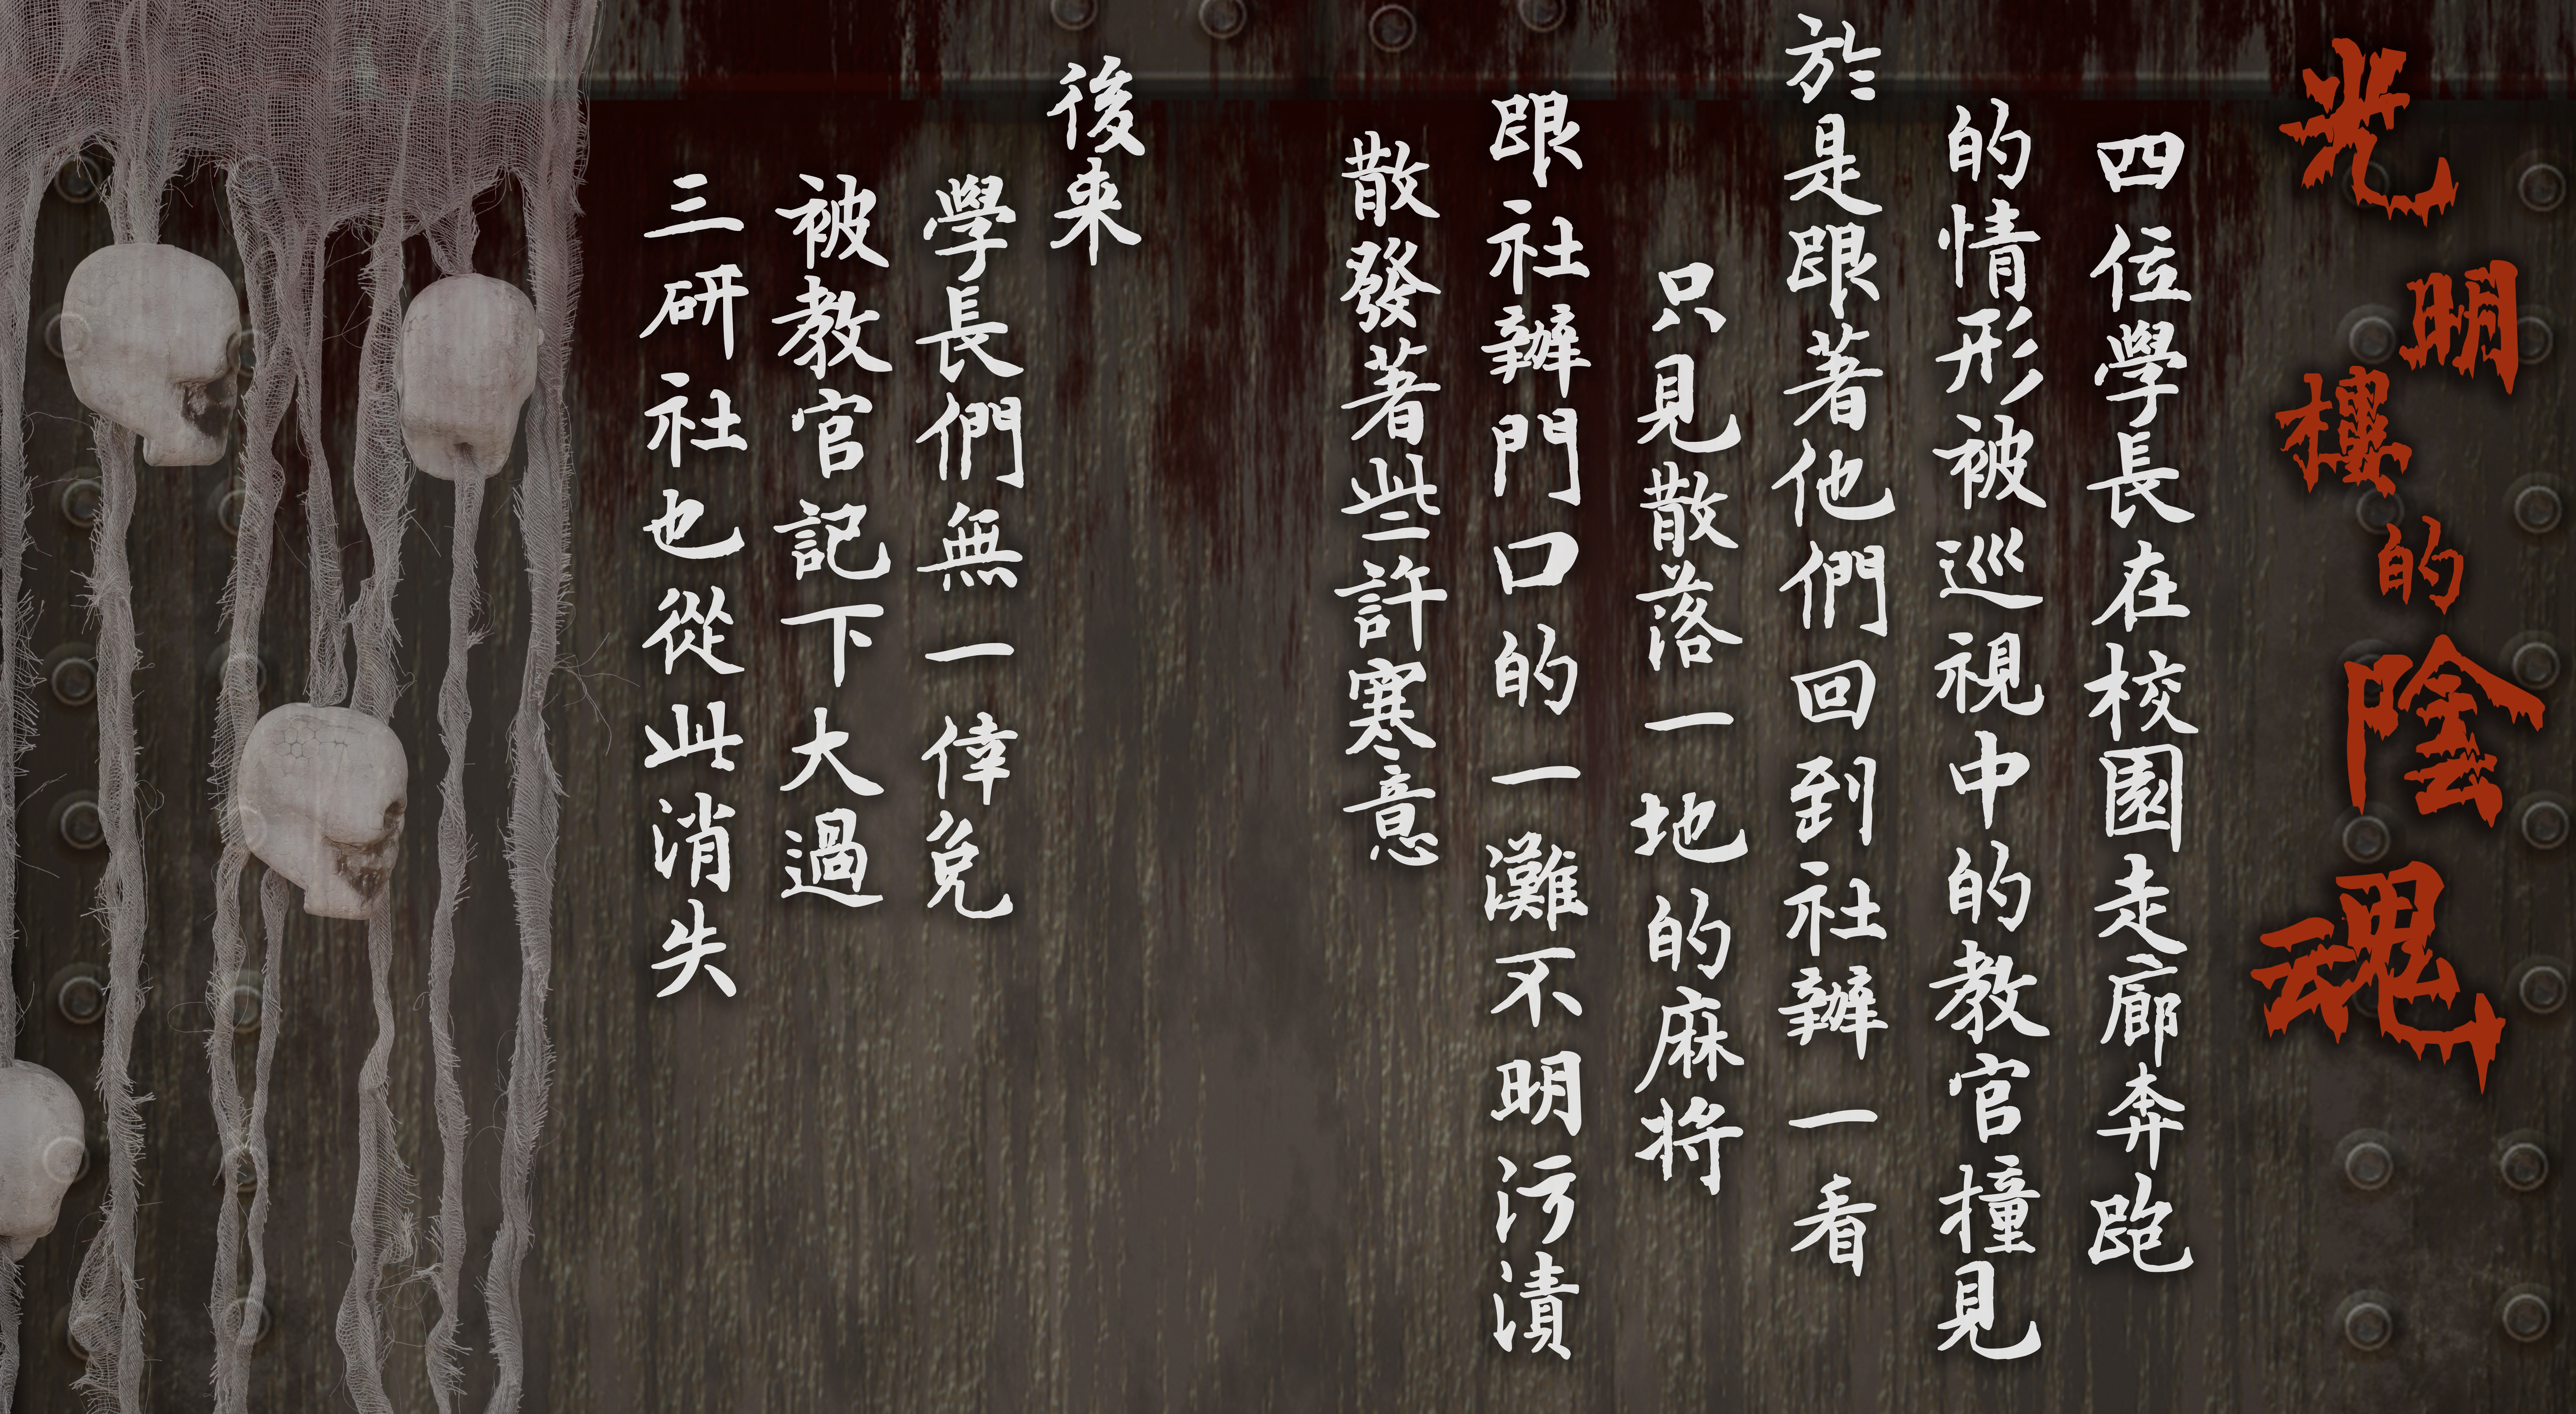 光明樓的陰魂
四位學長在校園走廊奔跑
的情形被巡視中的教官撞見
於是跟著他們回到社辦一看
只見散落一地的麻將
跟社辦門口的一灘不明污漬
散發著些許寒意
後來
學長們無一倖免
被教官記下大過
三研社也從此消失